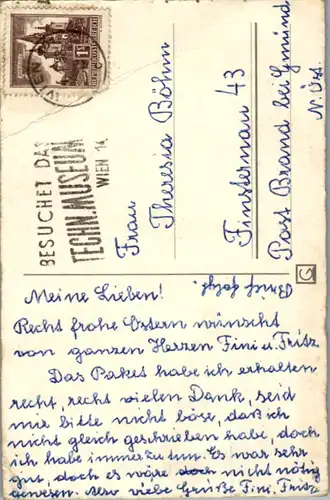 BESUCHET DAS
TECHN. MUSEUM
WIEN 14.
Frau
Theresia Böhm
Finsternau 43
Post Brand bei Gmünd
N. Öst.
Brief folgt.
Meine Lieben!
Recht frohe Ostern wünscht
von ganzen Herzen Fini u. Fritz.
Das Paket habe ich erhalten
recht, recht vielen Dank, seid
mir bitte nicht böse, daß ich
nicht gleich geschrieben habe, doch
ich habe immer zu tun. Es war sehr
gut doch es wäre doch nicht nötig
gewesen. Also viele Grüße Fini, Fritz